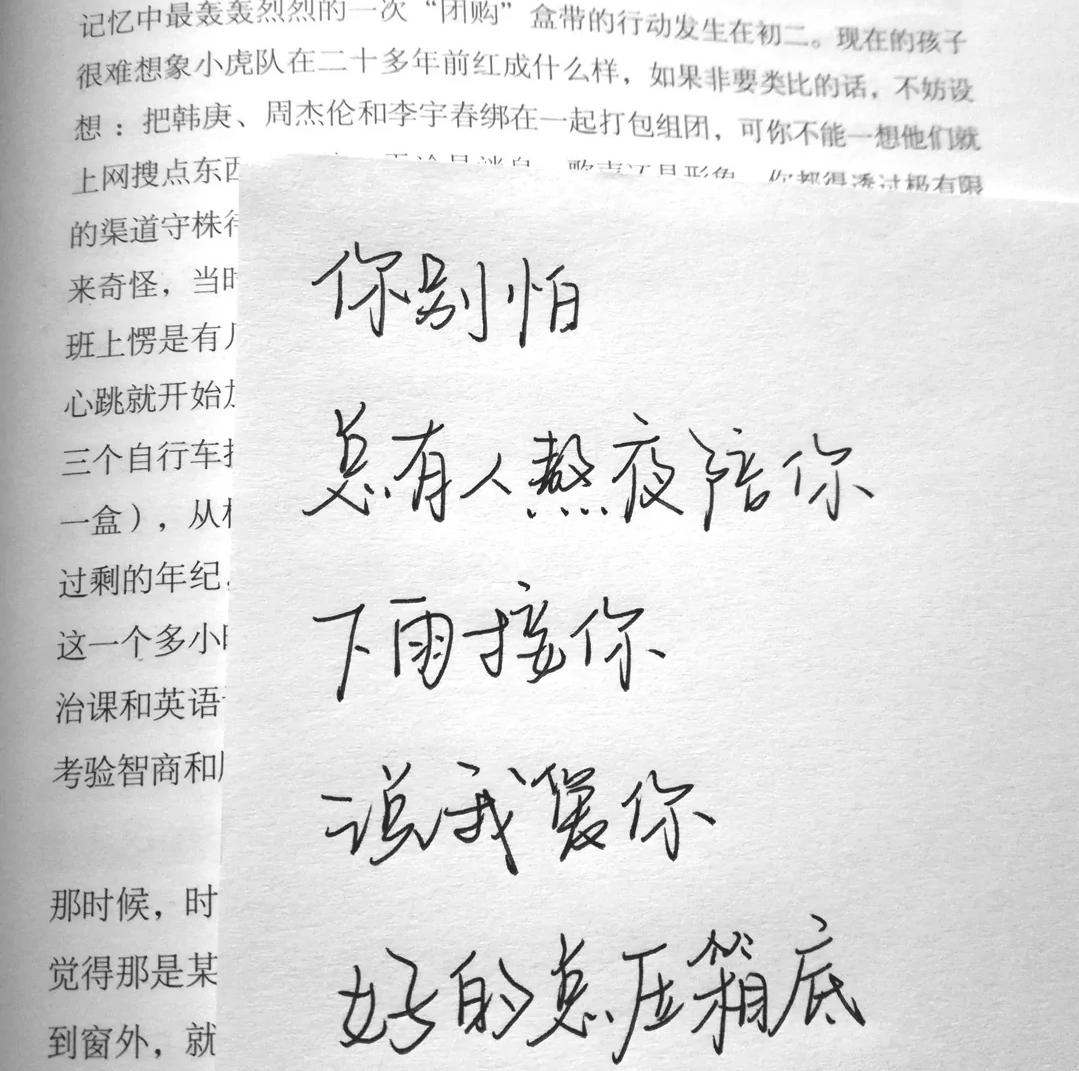 记忆中最轰轰烈烈的一次“团购”盒带的行动发生在初二。现在的孩子
很难想象小虎队在二十多年前红成什么样，如果非要类比的话，不妨设
想：把韩庚、周杰伦和李宇春绑在一起打包组团，可你不能一想他们就
上网搜点东西 无论是消息、歌声还是形象，你都得透过极有限
的渠道守株待
来奇怪，当时
班上愣是有几
心跳就开始加
三个自行车
一盒），从
过剩的年纪，
这一个多小时
治课和英语
考验智商和
那时候，时
觉得那是某
到窗外，就
你别怕
总有人熬夜陪你
下雨接你
说我爱你
好的总压箱底